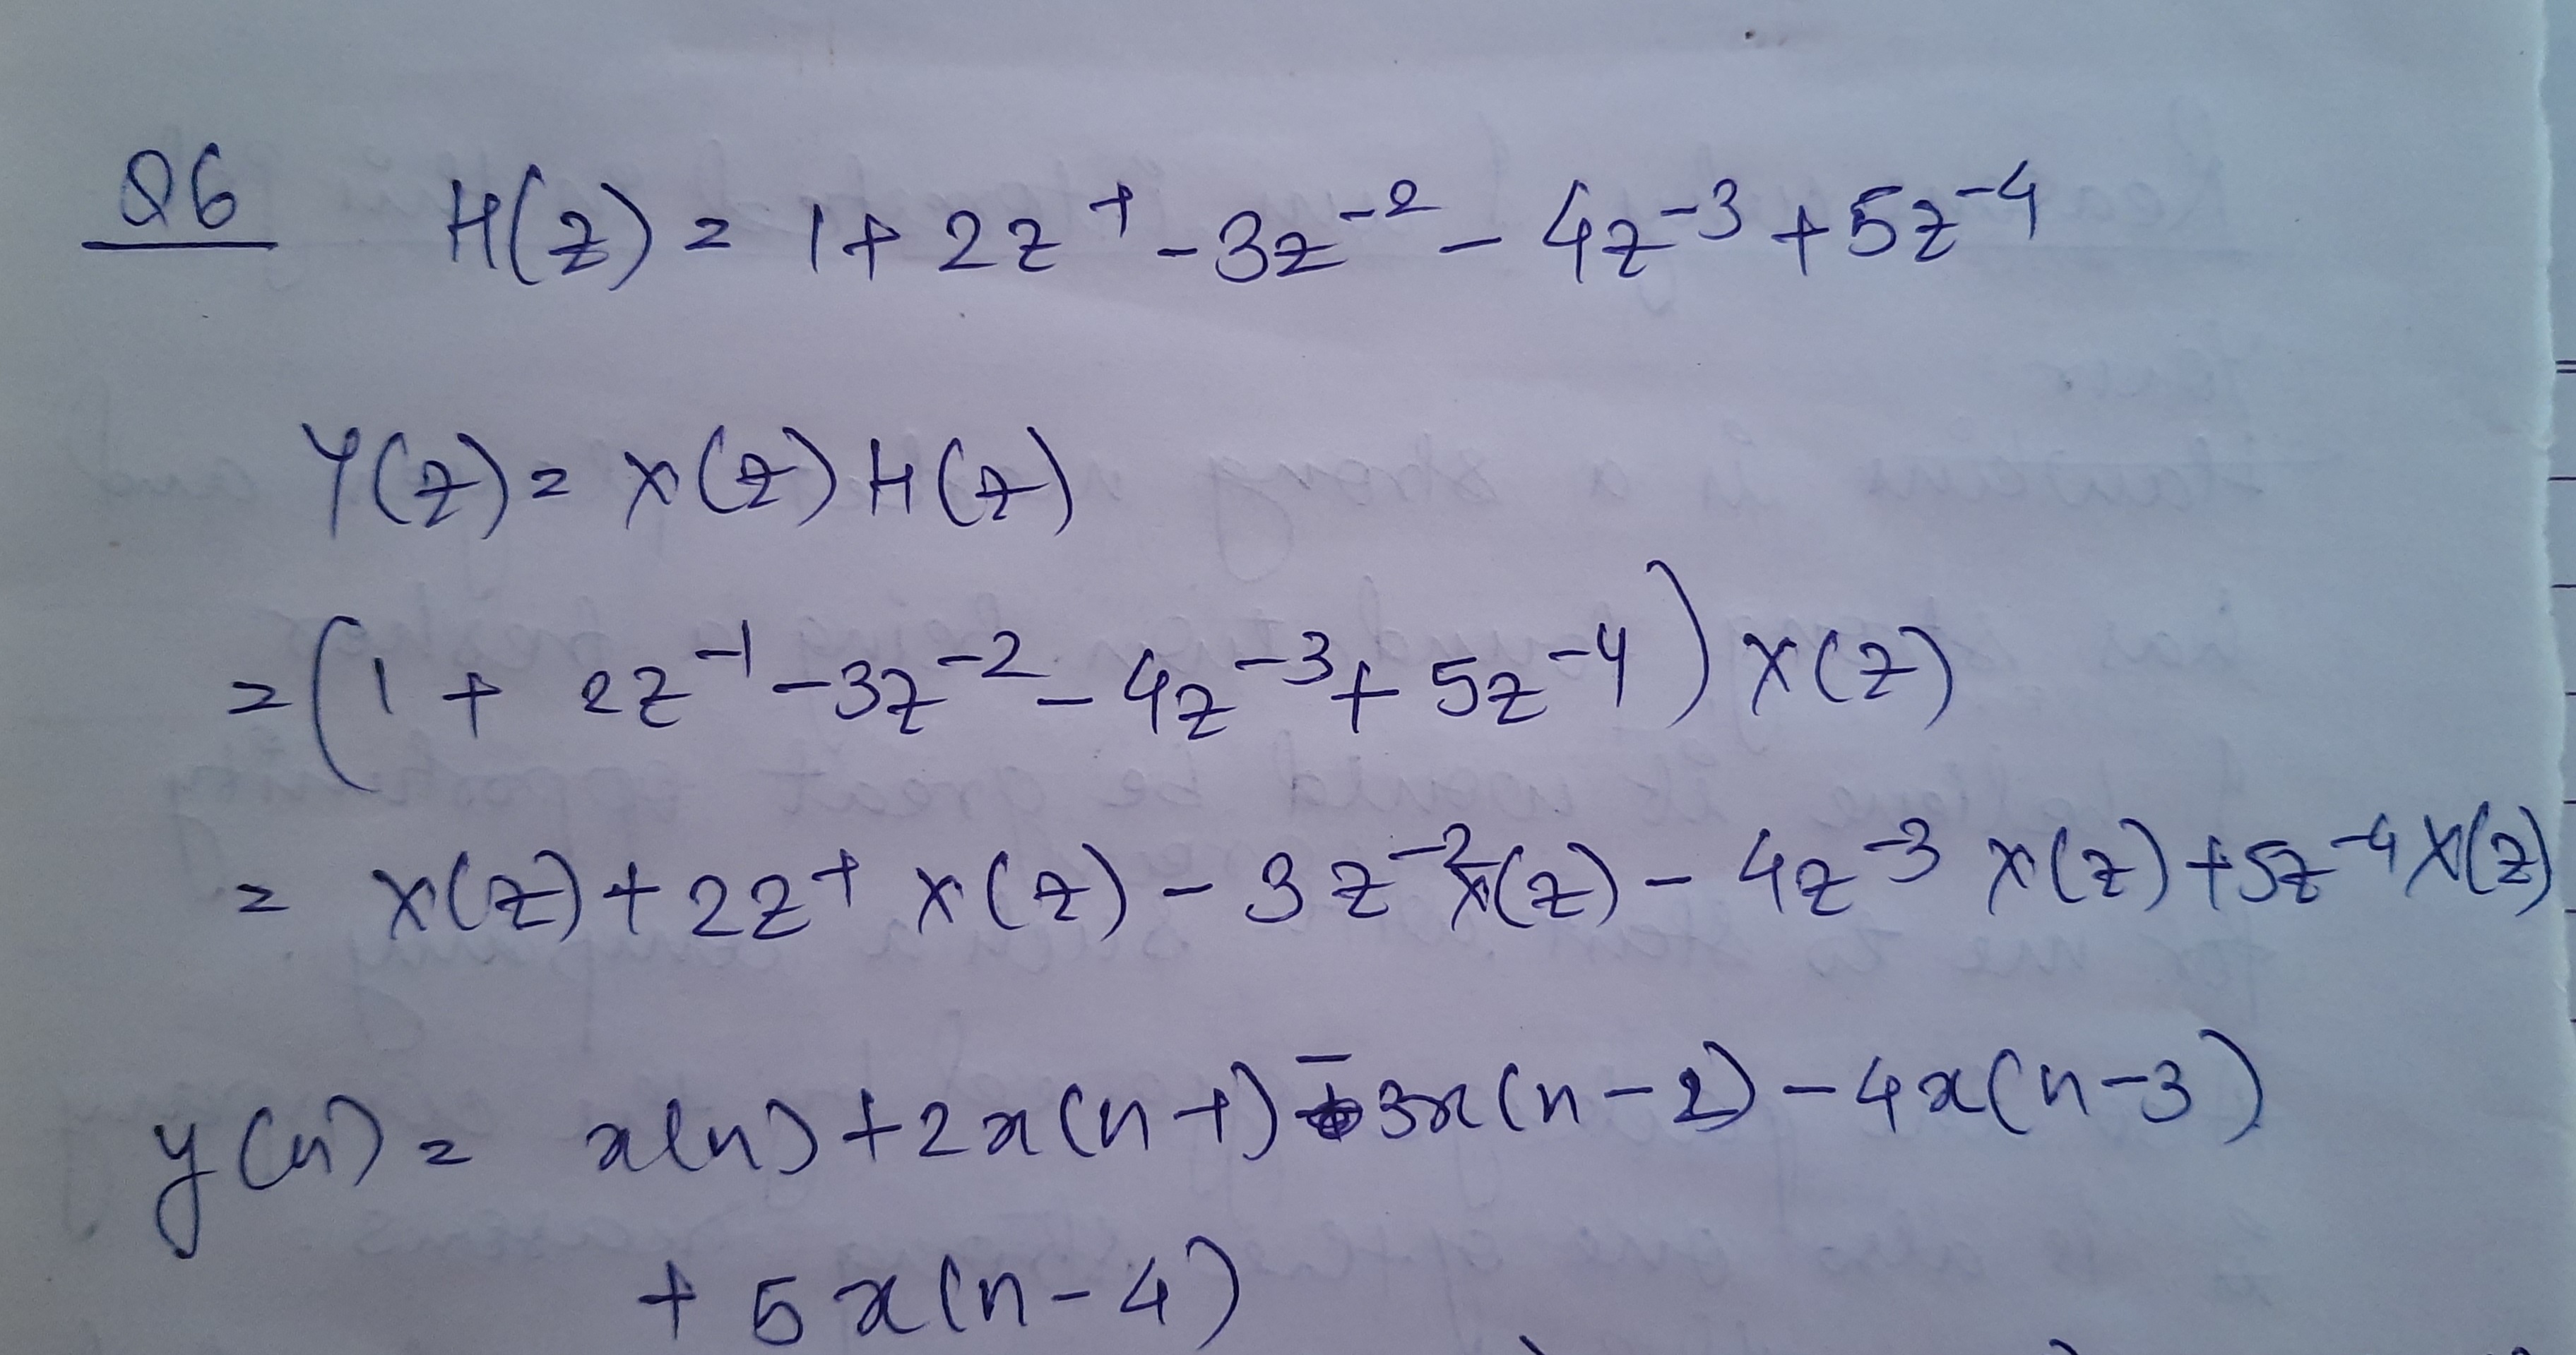 Q6 H(z) = 1 + 2z⁻¹ - 3z⁻² - 4z⁻³ + 5z⁻⁴
Y(z) = X(z) H(z)
= (1 + 2z⁻¹ - 3z⁻² - 4z⁻³ + 5z⁻⁴) X(z)
= X(z) + 2z⁻¹ X(z) - 3z⁻² X(z) - 4z⁻³ X(z) + 5z⁻⁴ X(z)
y(n) = x(n) + 2x(n-1) - 3x(n-2) - 4x(n-3)
+ 5x(n-4)